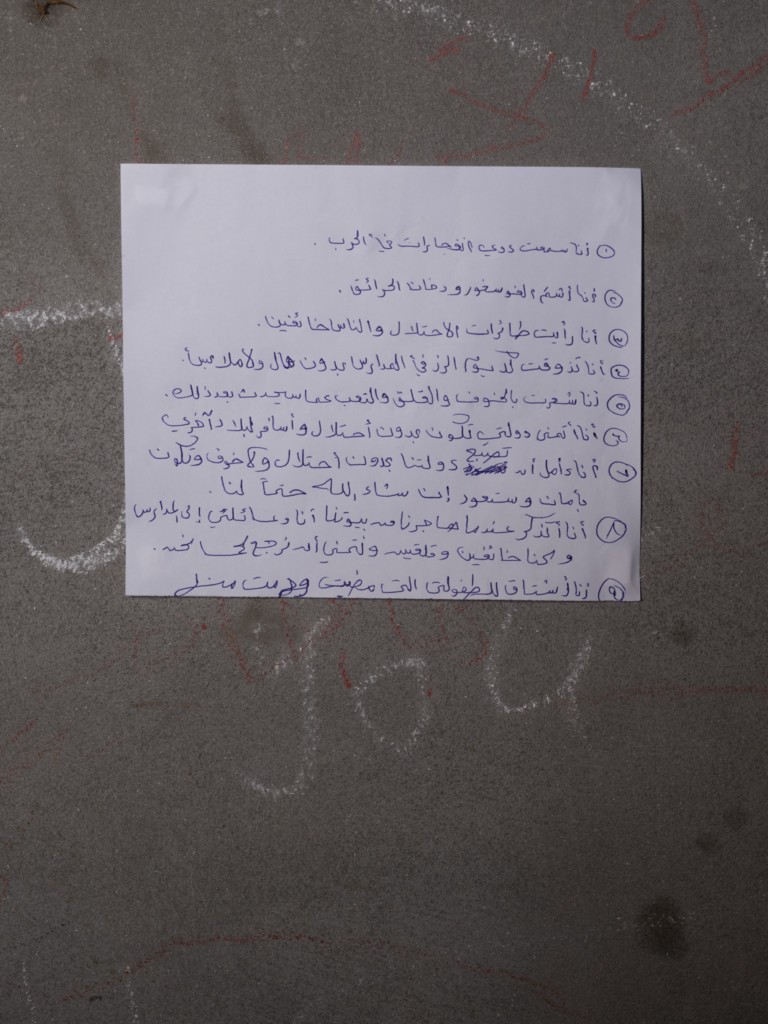 ١ أنا سمعت دوي انفجارات في الحرب .
٢ أنا أشم الفوسفور ودخان الحرائق .
٣ أنا رأيت طائرات الاحتلال والناس خائفين .
٤ أنا تذوقت الرز في المدارس بدون مال ولا ملابس .
٥ أنا شعرت بالخوف والقلق والتعب عما سيحدث بعد ذلك .
٦ أنا أتمنى دولتي تكون بدون أحتلال وأسافر لبلاد آخرى
٧ أنا أمل أن تصبح دولتنا بدون أحتلال ولا خوف وتكون
بأمان وستعود إن شاء الله حتماً لنا .
٨ أنا أتذكر عندما هاجرنا من بيوتنا أنا وعائلتي إلى المدارس
ونحنا خائفين وقلقين ونتمنى أن نرجع
٩ أنا أشتاق للطفولتي التي مضيت
you